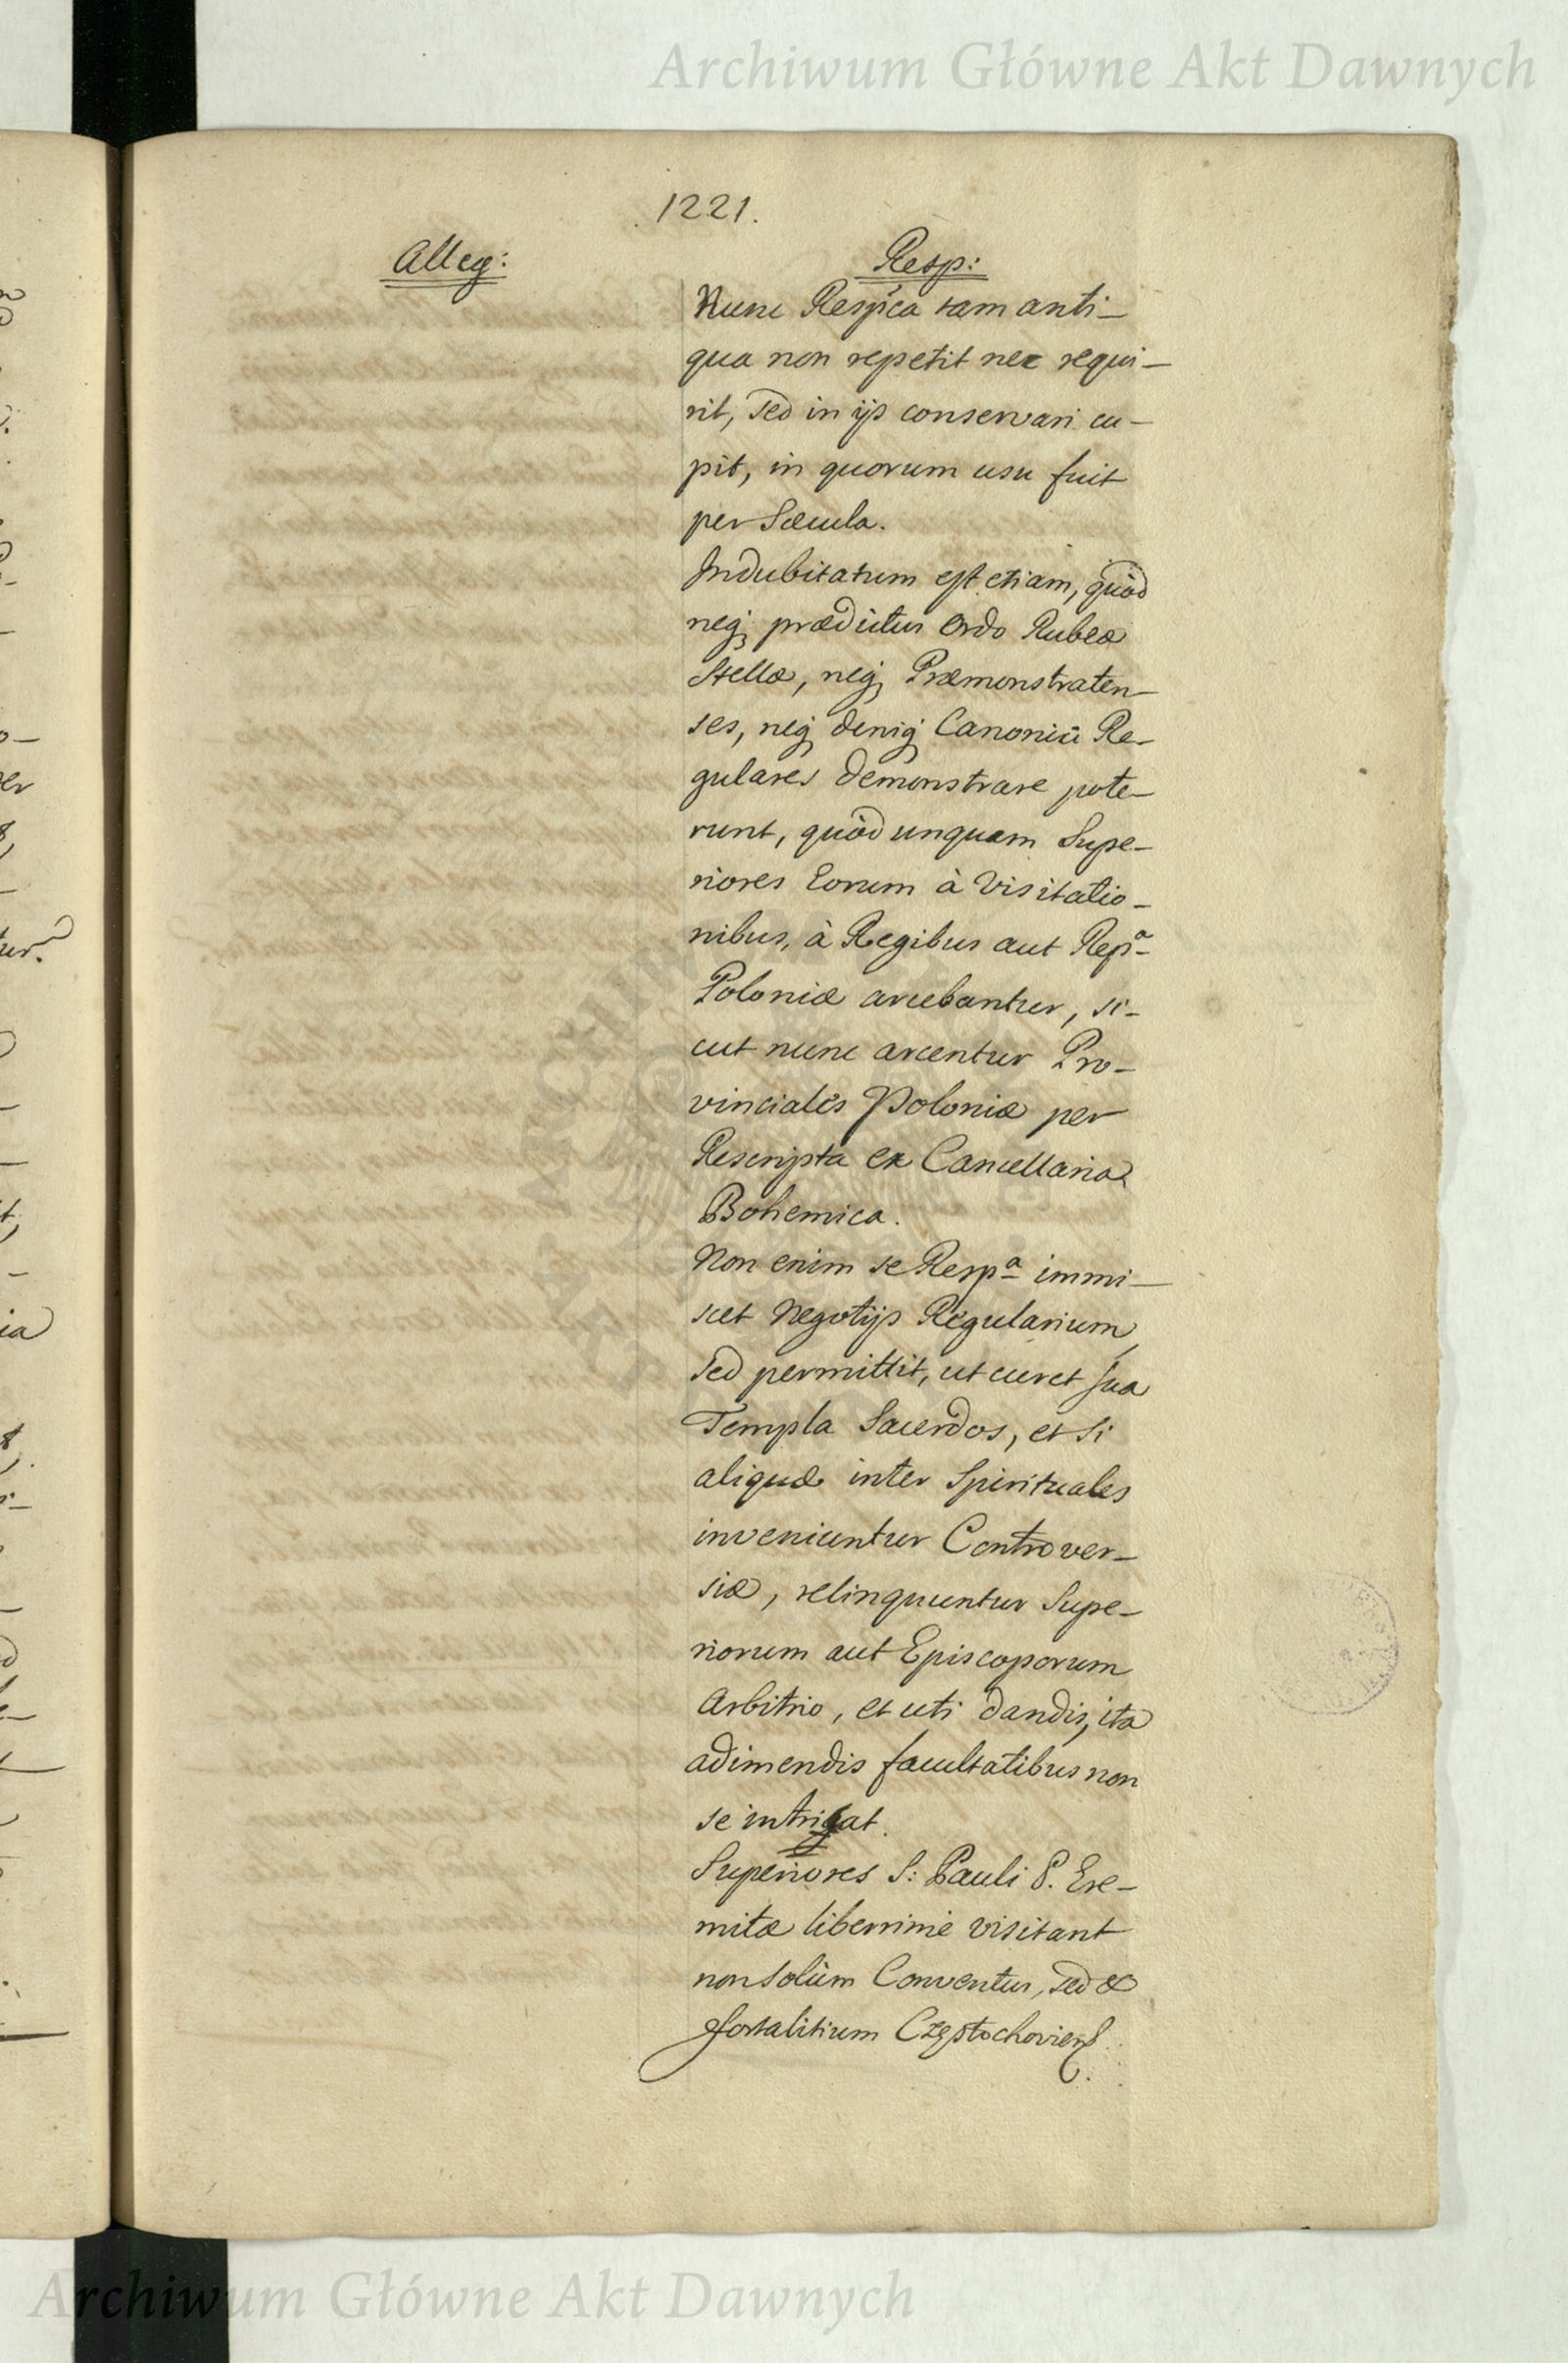 Archiwum Główne Akt Dawnych
1221.
Alleg:
Resp:
Nunc Resp'ca tam anti-
qua non repetit nec requi-
rit, sed in ijs conservari cu-
pit, in quorum usu fuit
per Sæcula.
Indubitatum est etiam, quòd
neq; prædictus Ordo Rubeæ
Stellæ, neq; Præmonstraten-
ses, neq; deniq; Canonici Re-
gulares demonstrare pote-
runt, quòd unquam Supe-
riores Eorum à Visitatio-
nibus, à Regibus aut Repª
Poloniæ arcebantur, si-
cut nunc arcentur Pro-
vinciales Poloniæ per
Rescripta ex Cancellaria
Bohemica.
Non enim se Respª immi-
scet Negotijs Regularium,
sed permittit, ut curet sua
Templa Sacerdos, et si
aliquæ inter Spirituales
inveniuntur Controver-
siæ, relinquuntur Supe-
riorum aut Episcoporum
Arbitrio, et uti dandis, ita
adimendis facultatibus non
se intricat.
Superiores S: Pauli P. Ere-
mitæ liberrimè visitant
non solùm Conventus, sed &
fortalitium Częstochoviens.
Archiwum Główne Akt Dawnych